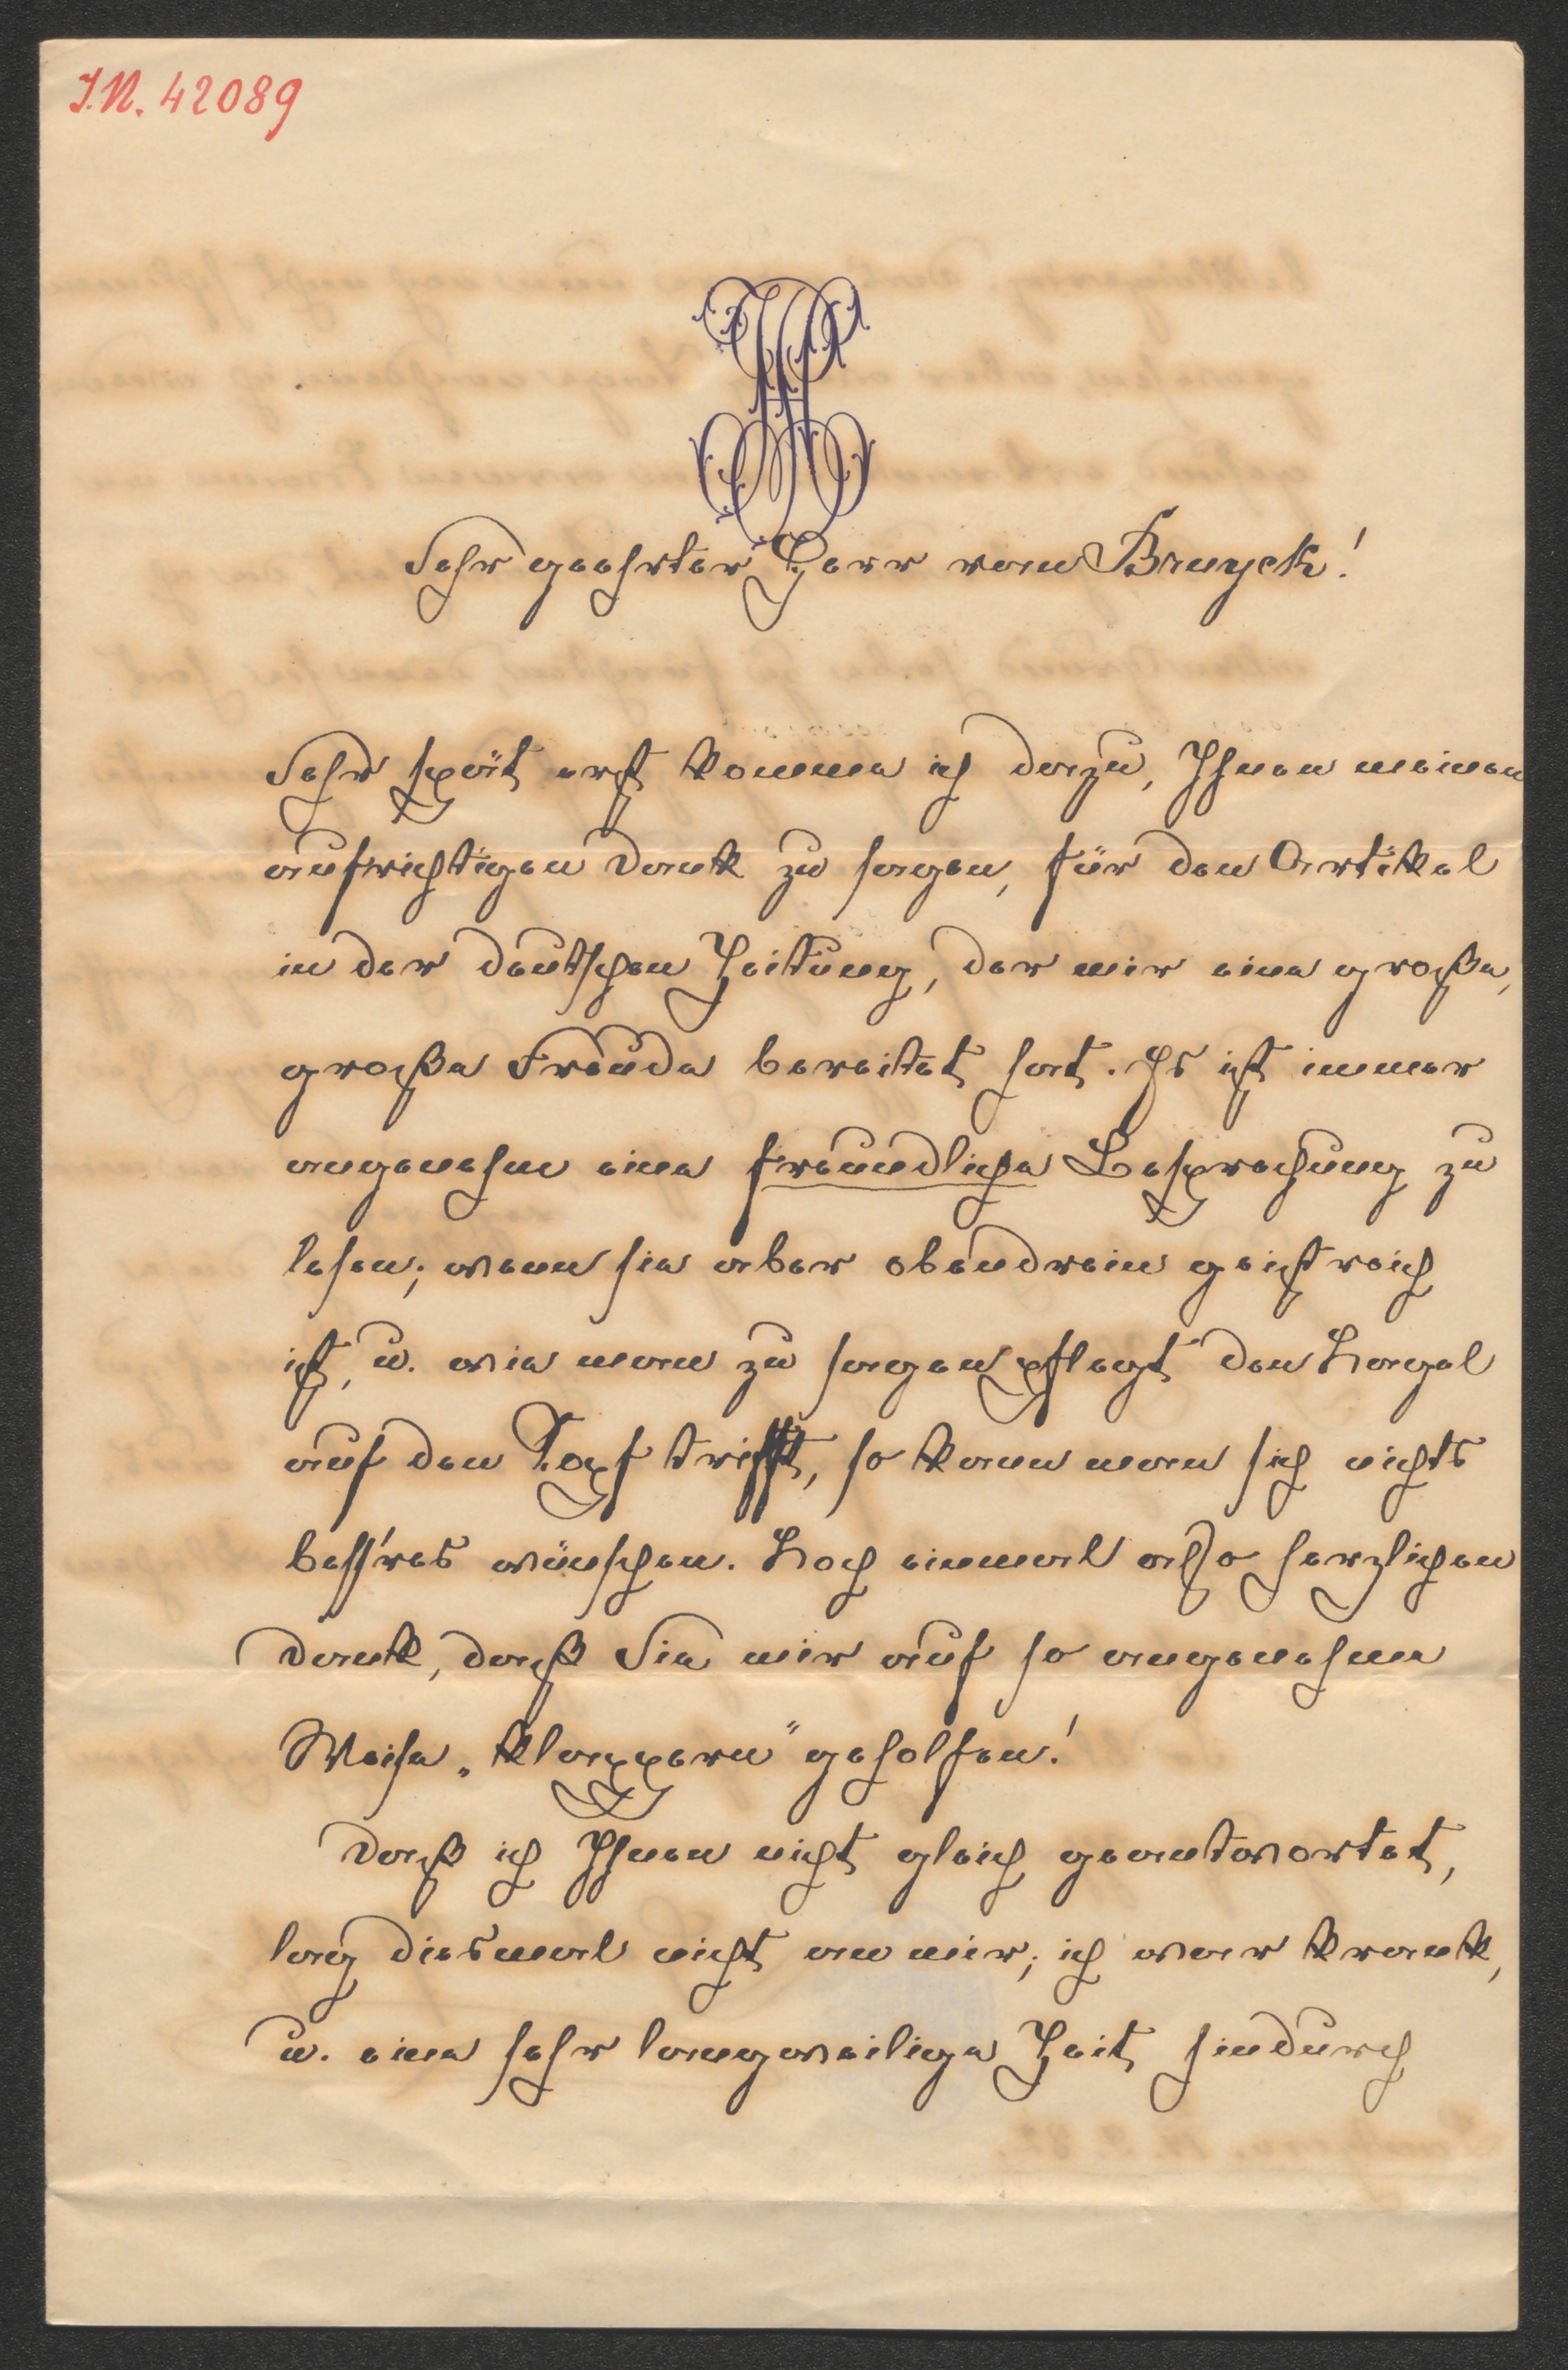 I.N. 42089
Sehr geehrter Herr van Bruyck!
Sehr spät erst komme ich dazu, Ihnen meinen
aufrichtigen Dank zu sagen, für den Artikel
in der deutschen Zeitung, der mir eine große,
große Freude bereitet hat. Es ist immer
angenehm eine freundliche Besprechung zu
lesen; wenn sie aber obendrein geistreich
ist, u. wie man zu sagen pflegt den Nagel
auf den Kopf trifft, so kann man sich nichts
bess'res wünschen. Noch einmal also herzlichen
Dank, daß Sie mir auf so angenehme
Weise „klappern" geholfen!
Daß ich Ihnen nicht gleich geantwortet,
lag diesmal nicht an mir; ich war krank,
u. eine sehr langweilige Zeit hindurch